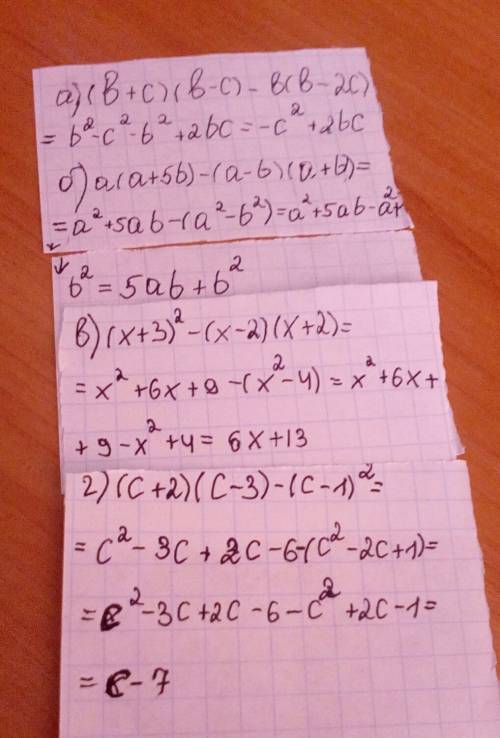 а) (b+c)(b-c) - b(b-2c)
= b²-c²-b²+2bc = -c²+2bc
б) a(a+5b)-(a-b)(a+b)=
= a²+5ab-(a²-b²)=a²+5ab-a²+
b² = 5ab+b²
в) (x+3)²-(x-2)(x+2)=
= x²+6x+9-(x²-4) = x²+6x+
+9-x²+4= 6x+13
г) (c+2)(c-3)-(c-1)²=
= c²-3c+2c-6-(c²-2c+1)=
= c²-3c+2c-6-c²+2c-1=
= c-7